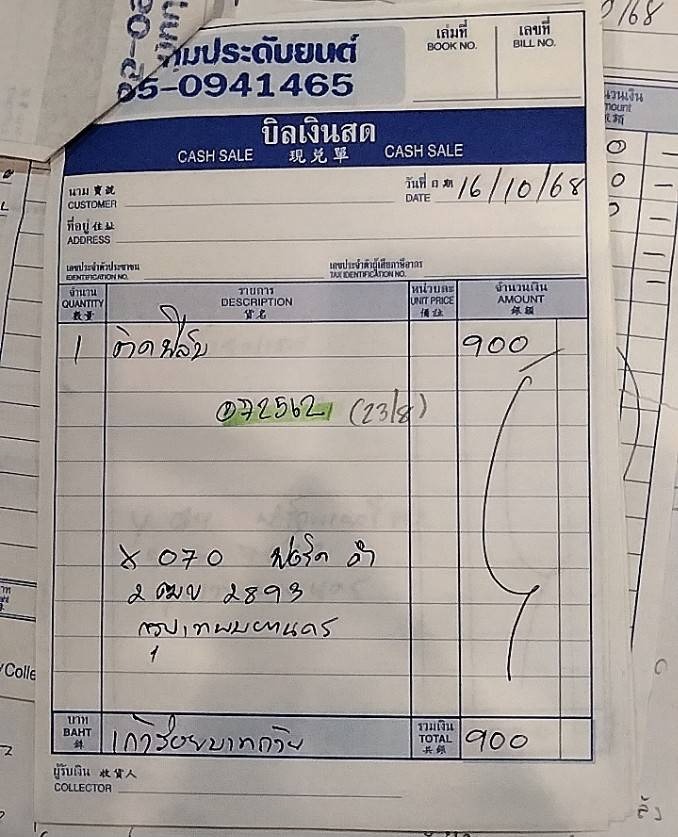 มประดับยนต์
05-0941465
เล่มที่
BOOK NO.
เลขที่
BILL NO.
บิลเงินสด
CASH SALE 現兌單 CASH SALE
นาม 寶號
CUSTOMER
วันที่ 日期
DATE 16/10/68
ที่อยู่ 住址
ADDRESS
เลขประจำตัวประชาชน
IDENTIFICATION NO.
เลขประจำตัวผู้เสียภาษีอากร
TAX IDENTIFICATION NO.
จำนวน
QUANTITY
數量
รายการ
DESCRIPTION
貨名
หน่วยละ
UNIT PRICE
價錢
จำนวนเงิน
AMOUNT
銀額
1 ติดฟิล์ม 900
072562 (23/8)
* 070 ฟอร์ด ดำ
2893
กรุงเทพมหานคร
บาท
BAHT
銖
เก้าร้อยบาทถ้วน
รวมเงิน
TOTAL
共銀
900
ผู้รับเงิน 收貨人
COLLECTOR
/68